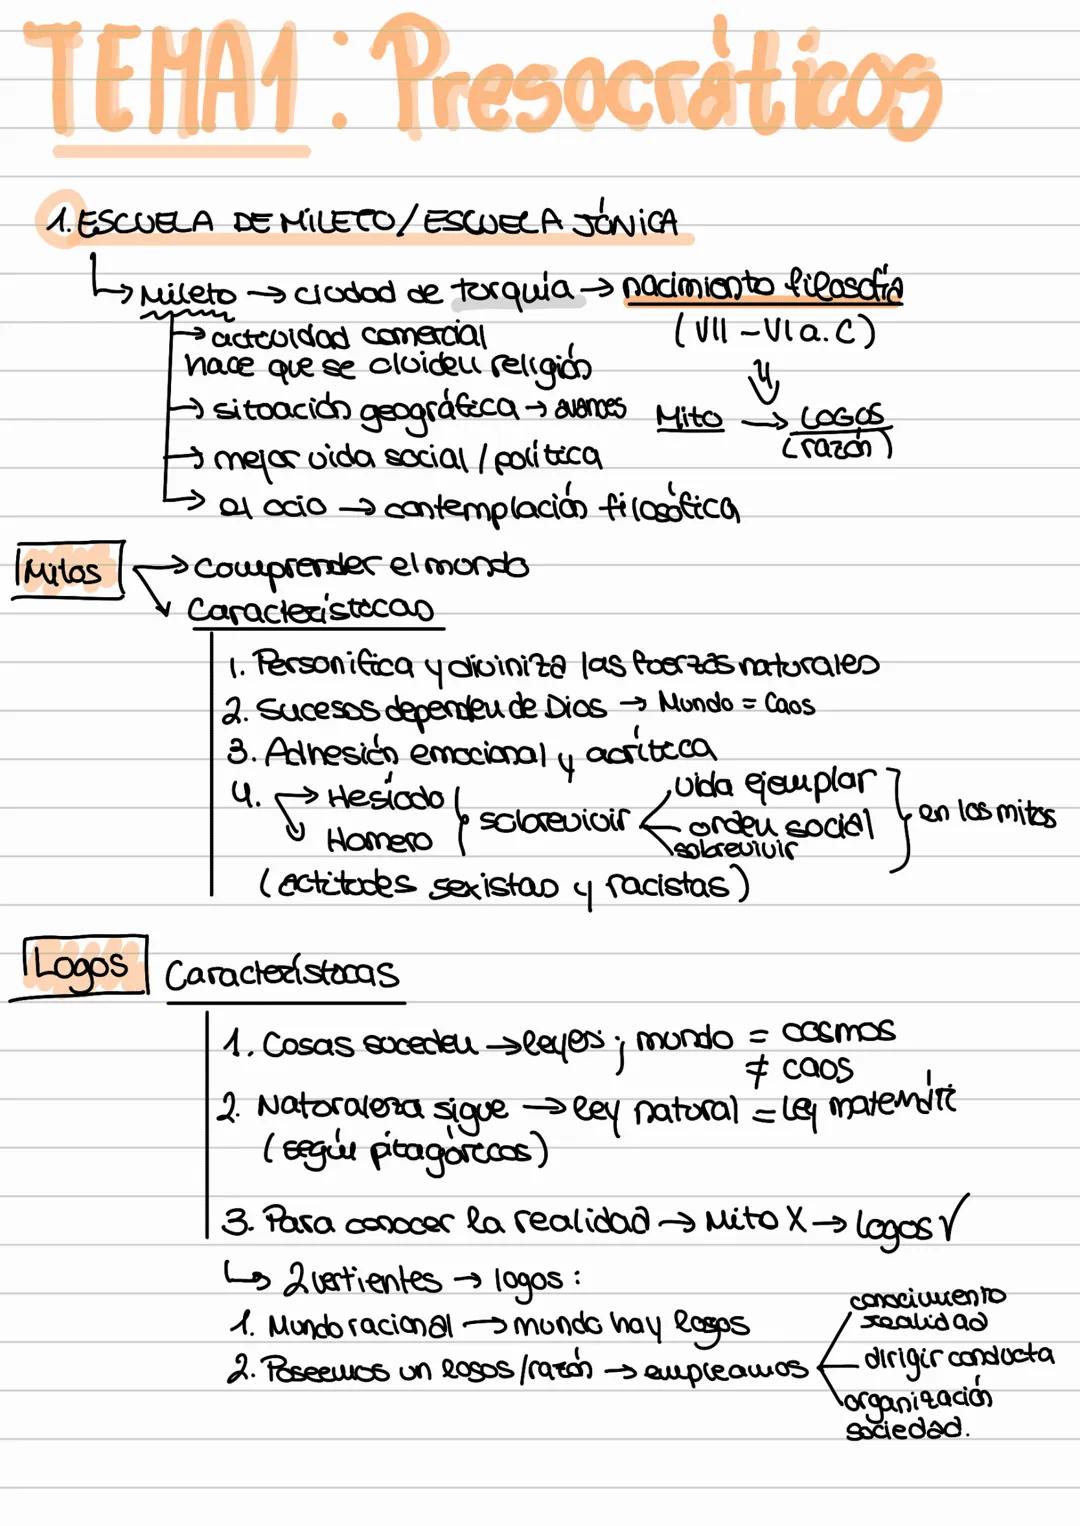 TEMA1: Presocráticos
1. ESCUELA DE MILETO/ESCUELA JÓNICA
↳ Mileto → ciudad de turquía → nacimiento filosofía
→ actividad comercial (VII - VI a.C)
hace que se olviden religión
→ situación geográfica → avances Mito → LOGOS
→ mejor vida social / política (razón)
→ el ocio → contemplación filosófica
Mitos → Comprender el mundo
Características
1. Personifica y diviniza las fuerzas naturales
2. Sucesos dependen de Dios → Mundo = Caos
3. Adhesión emocional y acrítica
4. → Hesíodo } sobrevivir vida ejemplar } en los mitos
Homero orden social
sobrevivir
(actitudes sexistas y racistas)
Logos Características
1. Cosas suceden → leyes; mundo = cosmos
≠ caos
2. Naturaleza sigue → ley natural = ley matemátic
(según pitagóricos)
3. Para conocer la realidad → Mito X → logos √
↳ 2 vertientes → logos:
1. Mundo racional → mundo hay logos
2. Poseemos un logos/razón → empleamos
conocimiento
realidad
dirigir conducta
organización
sociedad.